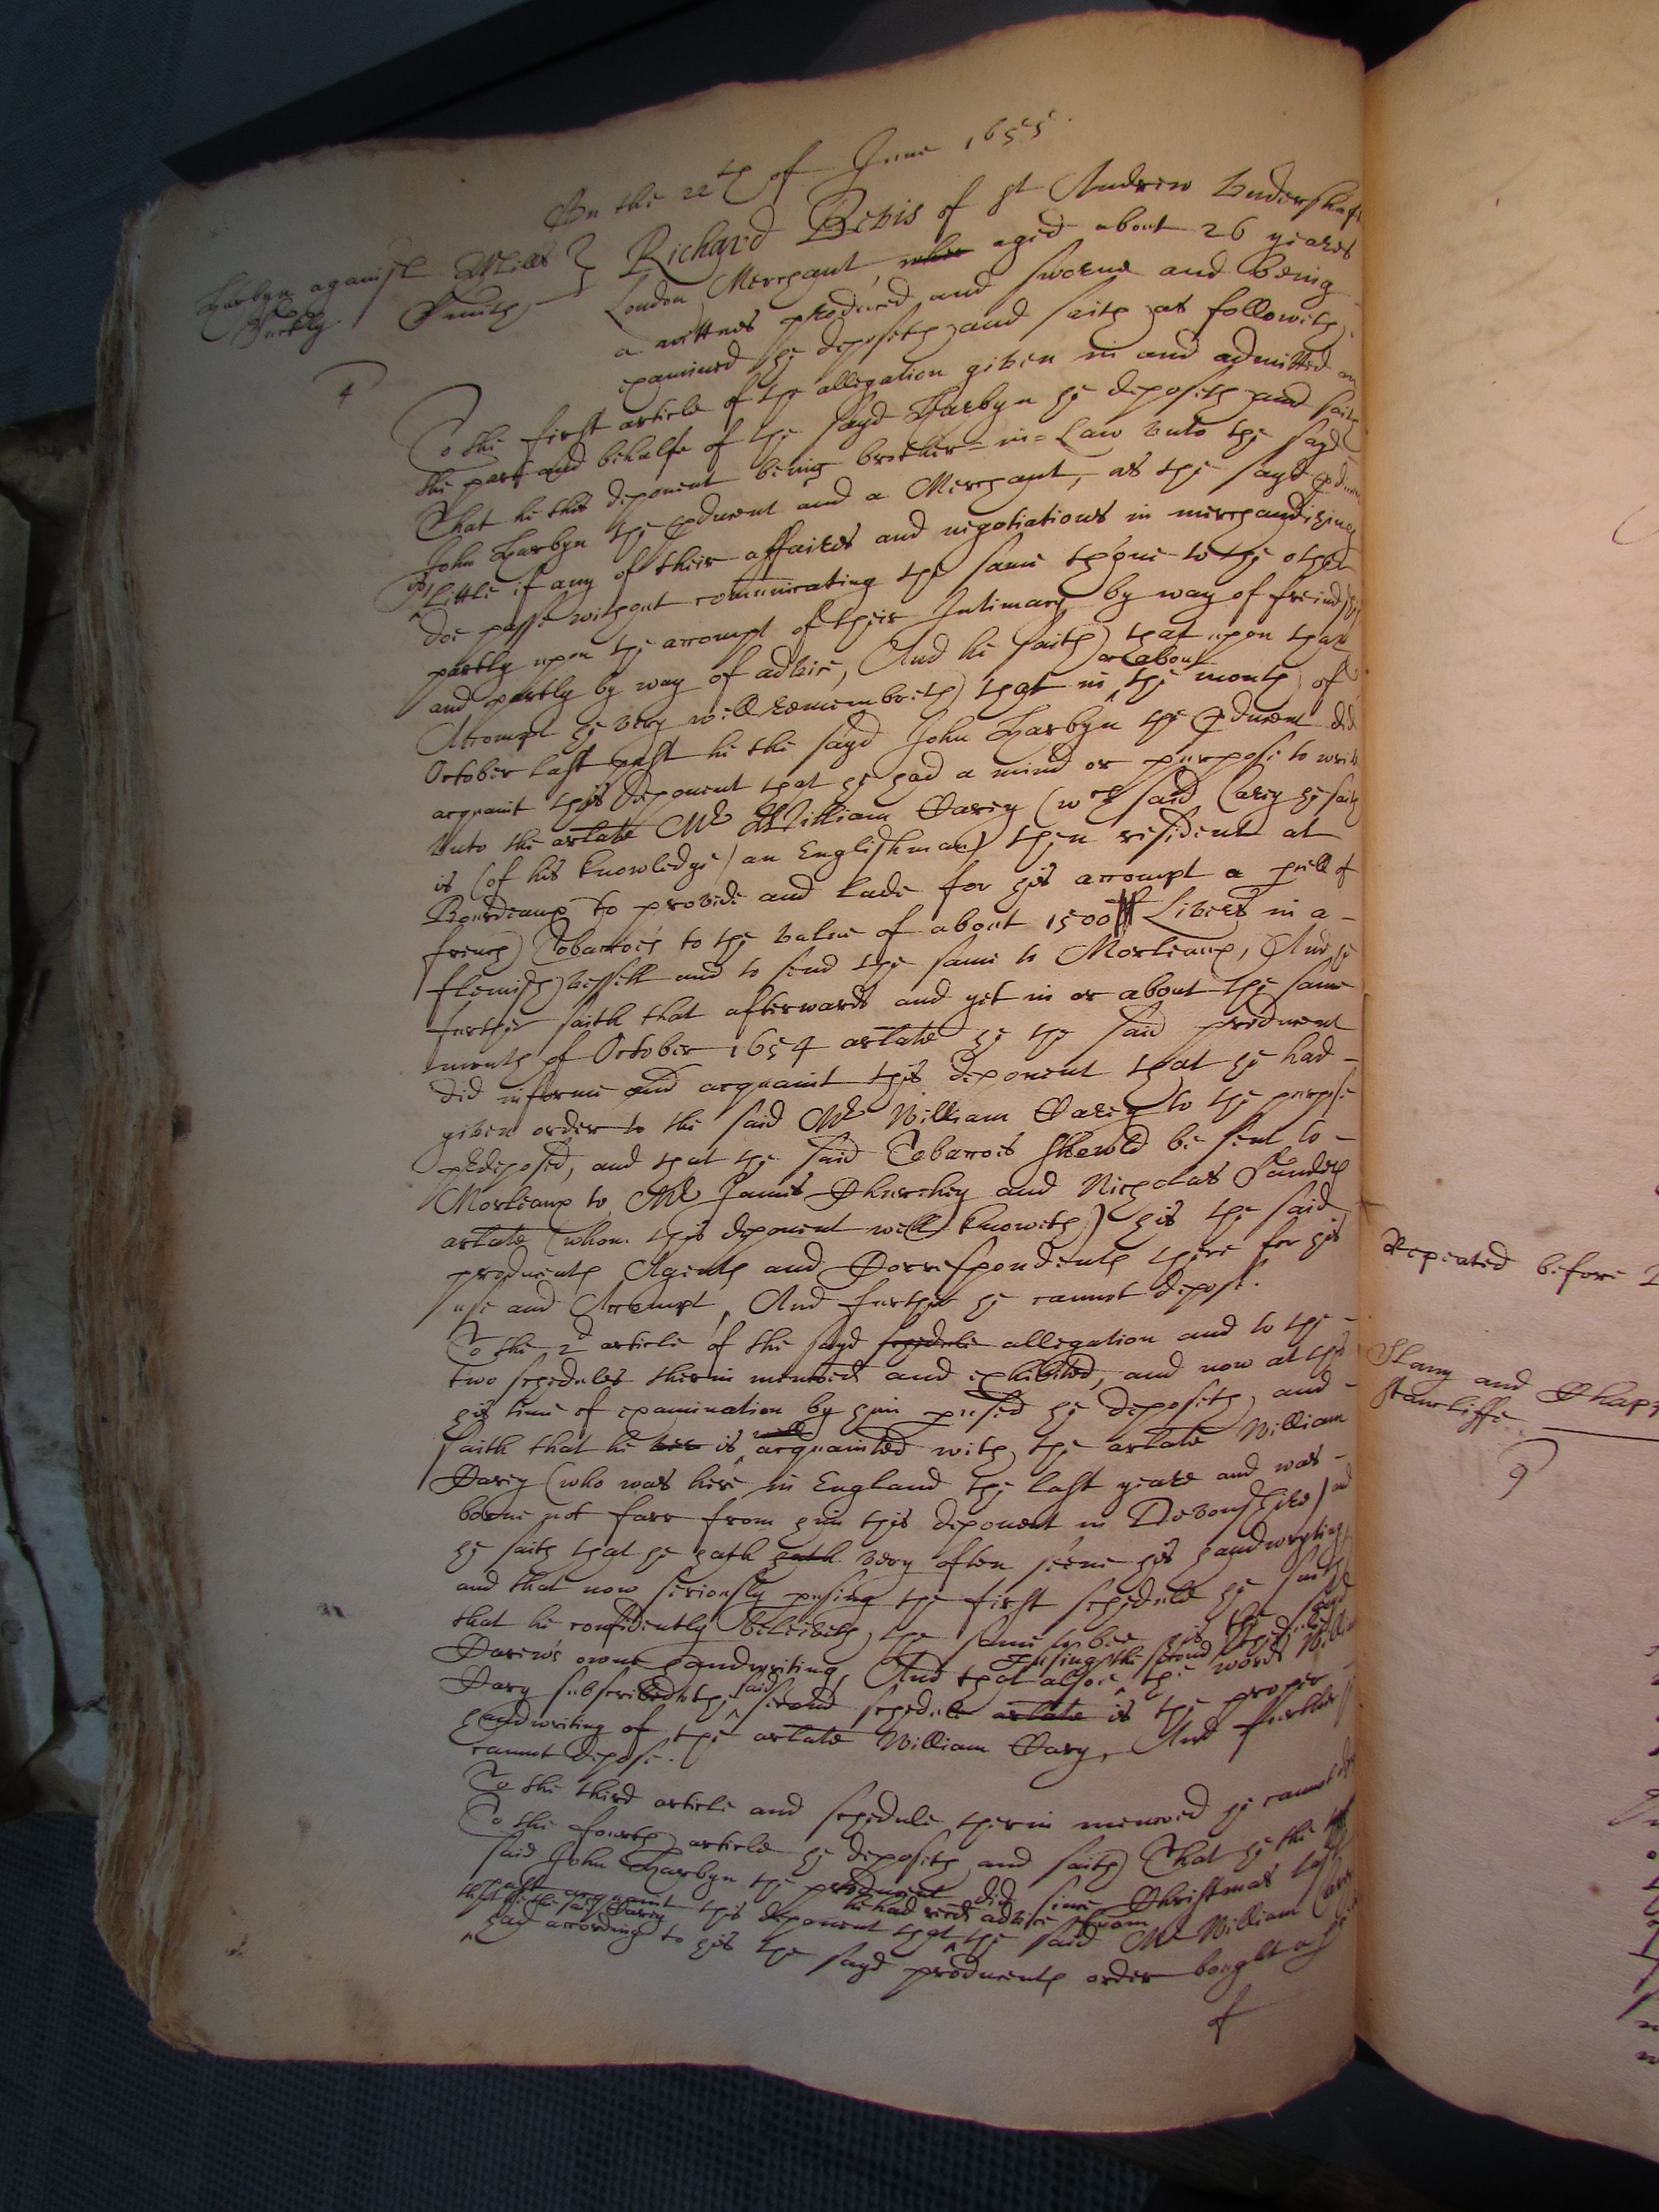 On the 22th of June 1655.
Harbyn against Mills
Suckly. Smith
4
Richard Bevis of St Andrew Undershaft
London Merchant, aged about 26 yeares
a wittnes produced and sworne and being
examined he deposeth and saith as followeth
To the first article of the allegation given in and admitted on
the part and behalfe of the sayd Harbyn he deposeth and saith
That he this deponent being brother-in-Law unto the sayd
John Harbyn the producent and a Merchant, as the sayd
is, Little if any of their affaires and negotiations in merchandizing
doe passe without communicating the same th'one to the other
partly upon the accompt of their Intimacy by way of freindship
and partly by way of advice, And he saith that upon that
or about
Accompt he very well remembreth that in the month of
October last past he the sayd John Harbyn the producent did
acquaint this deponent that he had a mind or purpose to write
unto the arlate Mr William Carey (wch said Carey he saith
is (of his knowledge) an Englishman) then resident at
Bourdeaux to provide and lade for his accompt a prcell of
french Tobaccoes to the value of about 1500 Livers in a
flemish vessell and to send the same to Morleaux, And he
further saith that afterwards and yet in or about the same
month of October 1654 arlate he the said producent
did informe and acquaint this deponent that he had
given order to the said Mr William Carey to the purpose
predeposed, and that the said Tobaccoes should be sent to
Morleaux to Mr James Churchey and Nicholas
arlate (whom this deponent well knoweth) his the said
producents Agents and Correspondents there for his
use and Accompt, And further he cannot depose.
To the 2d article of the sayd schedule allegation and to the
two schedules therin menconed and exhibited, and now at this
his time of examination by him perused he deposeth and
well
saith that he is acquainted with the arlate William
Carey (who was here in England the last yeare and was
borne not farr from him this deponent in Devonshire) and
he saith that he hath hath very often seene his handwryting
and that now seriously perusing the first schedule he saith
that he confidently beleiveth the same to bee his the sayd
perusing the second schedule
Careys owne handwriting, And that alsoe the words William
said
Cary subscribed to the second schedule arlate is the proper
handwriting of the arlate William Cary, And further
cannot depose.
To the third article and schedule therin menconed he cannot
To the fourth article he deposeth and saith That he the
said John Harbyn the producent did since Christmas last
he had receed advise from
past acquaint this deponent that the said Mr William Carey
that he the said Carey
had according to his the sayd producents order bought
of
Repeated before
Stany and
Stancliffe
9